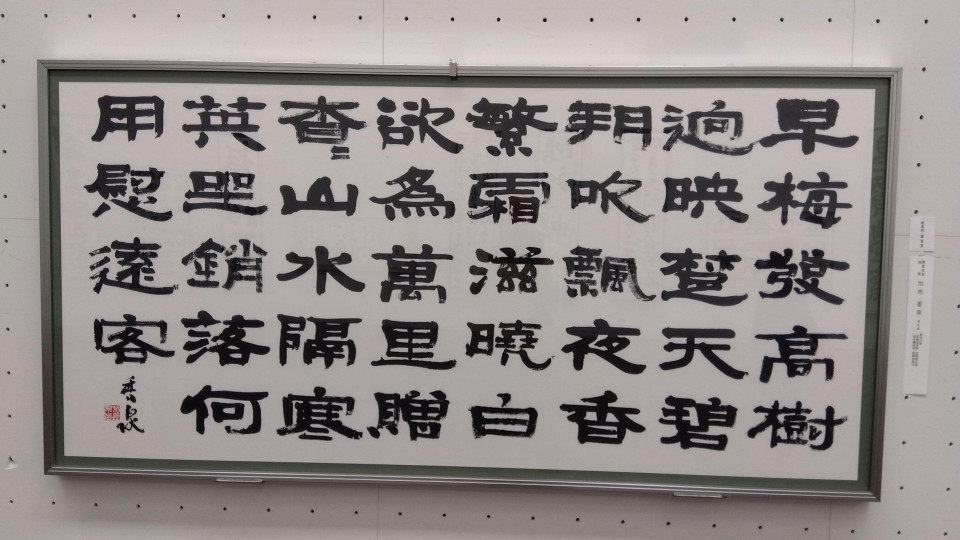 早梅發高樹
逈映楚天碧
朔吹飄夜香
繁霜滋曉白
欲為萬里贈
杳〻山水隔寒
英坐銷落何
用慰遠客